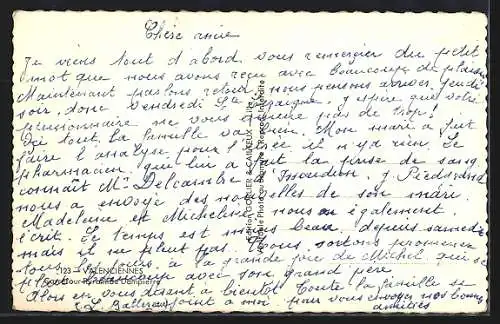 Chère amie
Je viens tout d'abord vous remercier du petit
mot que nous avons reçu avec beaucoup de plaisir
Maintenant parlons retour nous pensons arriver jeudi
soir, donc vendredi j'espère que votre
pensionnaire ne vous pas de trop!
Ici tout la famille va bien. Mon mari a fait
faire l'analyse pour il n'y a rien. Le
pharmacien qui lui a fait la prise de sang
connaît Mr Delcambre d'Issoudun, y
nous a envoyé des nouvelles de son mari.
Madeleine et Micheline nous ont également
écrit. Le temps est moins beau depuis samedi
mais il ne pleut pas. Nous sortons promener
tous les jours à la grande joie de Michel qui se
plaît avec son grand père.
Alors en vous disant à bientôt Toute la famille se
joint à moi pour vous envoyer nos bonnes
amitiés
123 - VALENCIENNES
Dampierre
Edition GORLIER & CAILLEUX